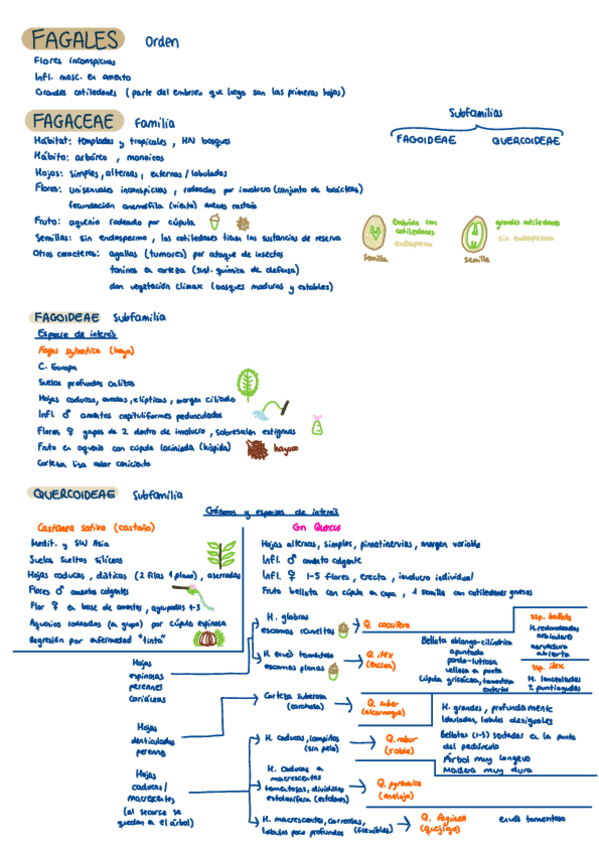 FAGALES Orden
Flores inconspicuas
Infl. masc. en amento
Grandes cotiledones (parte del embrión que luego son las primeras hojas)
FAGACEAE Familia
Subfamilias
FAGOIDEAE QUERCOIDEAE
Hábitat: templadas y tropicales, HN bosques
Hábito: arbóreo, monoicos
Hojas: simples, alternas, enteras/lobuladas
Flores: unisexuales inconspicuas, rodeadas por involucro (conjunto de bracteas)
fecundación anemófila (viento) menos castaño
Fruto: aquenio rodeado por cúpula
Semillas: sin endospermo, los cotiledones tienen las sustancias de reserva
Otros caracteres: agallas (tumores) por ataque de insectos
taninos en corteza (sust. química de defensa)
dan vegetación climax (bosques maduros y estables)
embrión con cotiledones
endospermo
semilla
grandes cotiledones
sin endospermo
semilla
FAGOIDEAE Subfamilia
Especie de interés
Fagus sylvatica (haya)
C. Europa
Suelos profundos calizos
Hojas caducas, ovadas, elípticas, margen ciliado
Infl ♂ amentos capituliformes pedunculados
Flores ♀ grupos de 2 dentro de involucro, sobresalen estigmas
Fruto en aquenio con cúpula laciniada (híspida) hayuco
Corteza lisa color ceniciento
QUERCOIDEAE Subfamilia
Géneros y especies de interés
Castanea sativa (castaño)
Medit. y SW Asia
Suelos sueltos silíceos
Hojas caducas, dísticas (2 filas 1 plano), aserradas
Flores ♂ amento colgantes
Flor ♀ en base de amentos, agrupadas 1-3
Aquenios rodeados (en grupo) por cúpula espinosa
Regresión por enfermedad "tinta"
Gn Quercus
Hojas alternas, simples, pinnatinervias, margen variable
Infl. ♂ amento colgante
Infl. ♀ 1-5 flores, erecta, involucro individual
Fruto bellota con cúpula en copa, 1 semilla con cotiledones gruesos
Hojas
espinosas
perennes
coriáceas
H. glabras
escamas revueltas
Q. coccifera
H. envés tomentoso
escamas planas
Q. ilex
(encina)
Bellota oblongo-cilíndrica
apuntada
pardo-lustrosa
vellosa en punta
Cúpula grisácea, tomentosa
exterior
ssp. ballota
H. redondeadas
orbiculares
nervadura
abierta
ssp. ilex
H. lanceoladas
2 puntiagudas
Hojas
denticuladas
perenne
Corteza suberosa
(corchosa)
Q. suber
(alcornoque)
Hojas
caducas/
marcescentes
(al secarse se
quedan en el árbol)
H. caducas, lampiñas
(sin pelo)
Q. robur
(roble)
H. grandes, profundamente
lobuladas, lobulos desiguales
Bellotas (1-5) sentadas en la punta
del pedúnculo
Árbol muy longevo
Madera muy dura
H. caducas o
marcescentes
tomentosas, divididas
estolonífera (estolones)
Q. pyrenaica
(melojo)
H. marcescentes, coriáceas,
lobulos poco profundos (flexibles)
Q. faginea
(quejigo)
envés tomentoso